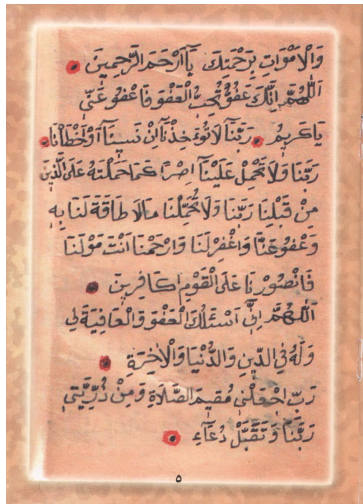 وَالْاَمْوَاتِ بِرَحْمَتِكَ يَآ اَرْحَمَ الرَّحِمِينَ
اَللّٰهُمَّ اِنَّكَ عَفُوٌّ تُحِبُّ الْعَفْوَ فَاعْفُوعَنّٖى
يَاكَرِيمُ رَبَّنَا لَا تُؤَخِذْنَٓا اِنْ نَسٖينَٓا اَوْاَخْطَاْنَا
رَبَّنَا وَلَا تَحْمِلْ عَلَيْنَٓا اِصْرًا كَمَا حَمَلْتَهُ عَلَى الَّذٖينَ
مِنْ قَبْلِنَا رَبَّنَا وَلَا تُحَمِّلْنَا مَالَا طَاقَةَ لَنَا بِهٖ
وَعْفُوعَنَّا وَاغْفِرْلَنَا وَارْحَمْنَا اَنْتَ مَوْلٰنَا
فَانْصُورْنَا عَلَى الْقَوْمِ الكَافِرِينَ
اَللّٰهُمَّ اِنّٖى اَسْئَلُكَ الْعَفْوَ وَالْعَافِيَةَ لِى
وَلَهُ فِى الدّٖينِ وَالدُّنْيَا وَالْاٰخِرَةِ
رَبِّ اجْعَلْنٖى مُقٖيمَ الصَّلَاةِ وَمِنْ ذُرِّيَّتٖى
رَبَّنَا وَتَقَبَّلْ دُعَآءِ
٥